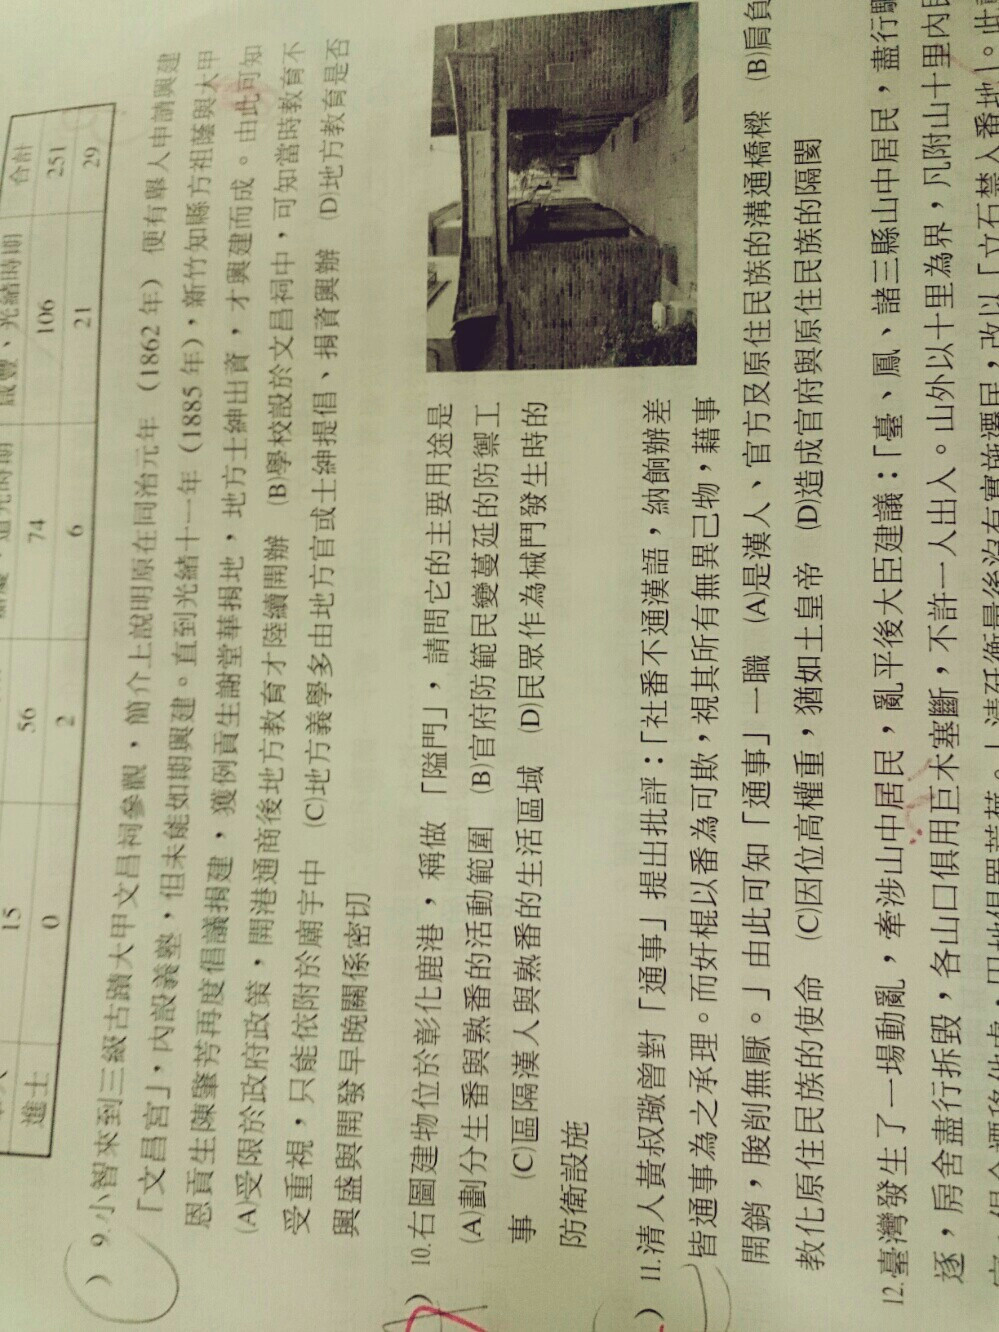 合計
15 56 74 106 251
進士 0 2 6 21 29
) 9.小智來到三級古蹟大甲文昌祠參觀，簡介上說明原在同治元年（1862 年）便有舉人申請興建
「文昌宮」，內設義塾，但未能如期興建。直到光緒十一年（1885 年），新竹知縣方祖蔭與大甲
恩貢生陳肇芳再度倡議捐建，獲例貢生謝堂華捐地，地方士紳出資，才興建而成。由此可知
(A)受限於政府政策，開港通商後地方教育才陸續開辦 (B)學校設於文昌祠中，可知當時教育不
受重視，只能依附於廟宇中 (C)地方義學多由地方官或士紳提倡、捐資興辦 (D)地方教育是否
興盛與開發早晚關係密切
) 10.右圖建物位於彰化鹿港，稱做「隘門」，請問它的主要用途是
(A)劃分生番與熟番的活動範圍 (B)官府防範民變蔓延的防禦工
事 (C)區隔漢人與熟番的生活區域 (D)民眾作為械鬥發生時的
防衛設施
) 11.清人黃叔璥曾對「通事」提出批評：「社番不通漢語，納餉辦差
皆通事為之承理。而奸棍以番為可欺，視其所有無異己物，藉事
開銷，朘削無厭。」由此可知「通事」一職 (A)是漢人、官方及原住民族的溝通橋樑 (B)肩負
教化原住民族的使命 (C)因位高權重，猶如土皇帝 (D)造成官府與原住民族的隔閡
12.臺灣發生了一場動亂，牽涉山中居民，亂平後大臣建議：「臺、鳳、諸三縣山中居民，盡行驅
逐，房舍盡行拆毀，各山口俱用巨木塞斷，不許一人出入。山外以十里為界，凡附山十里內民